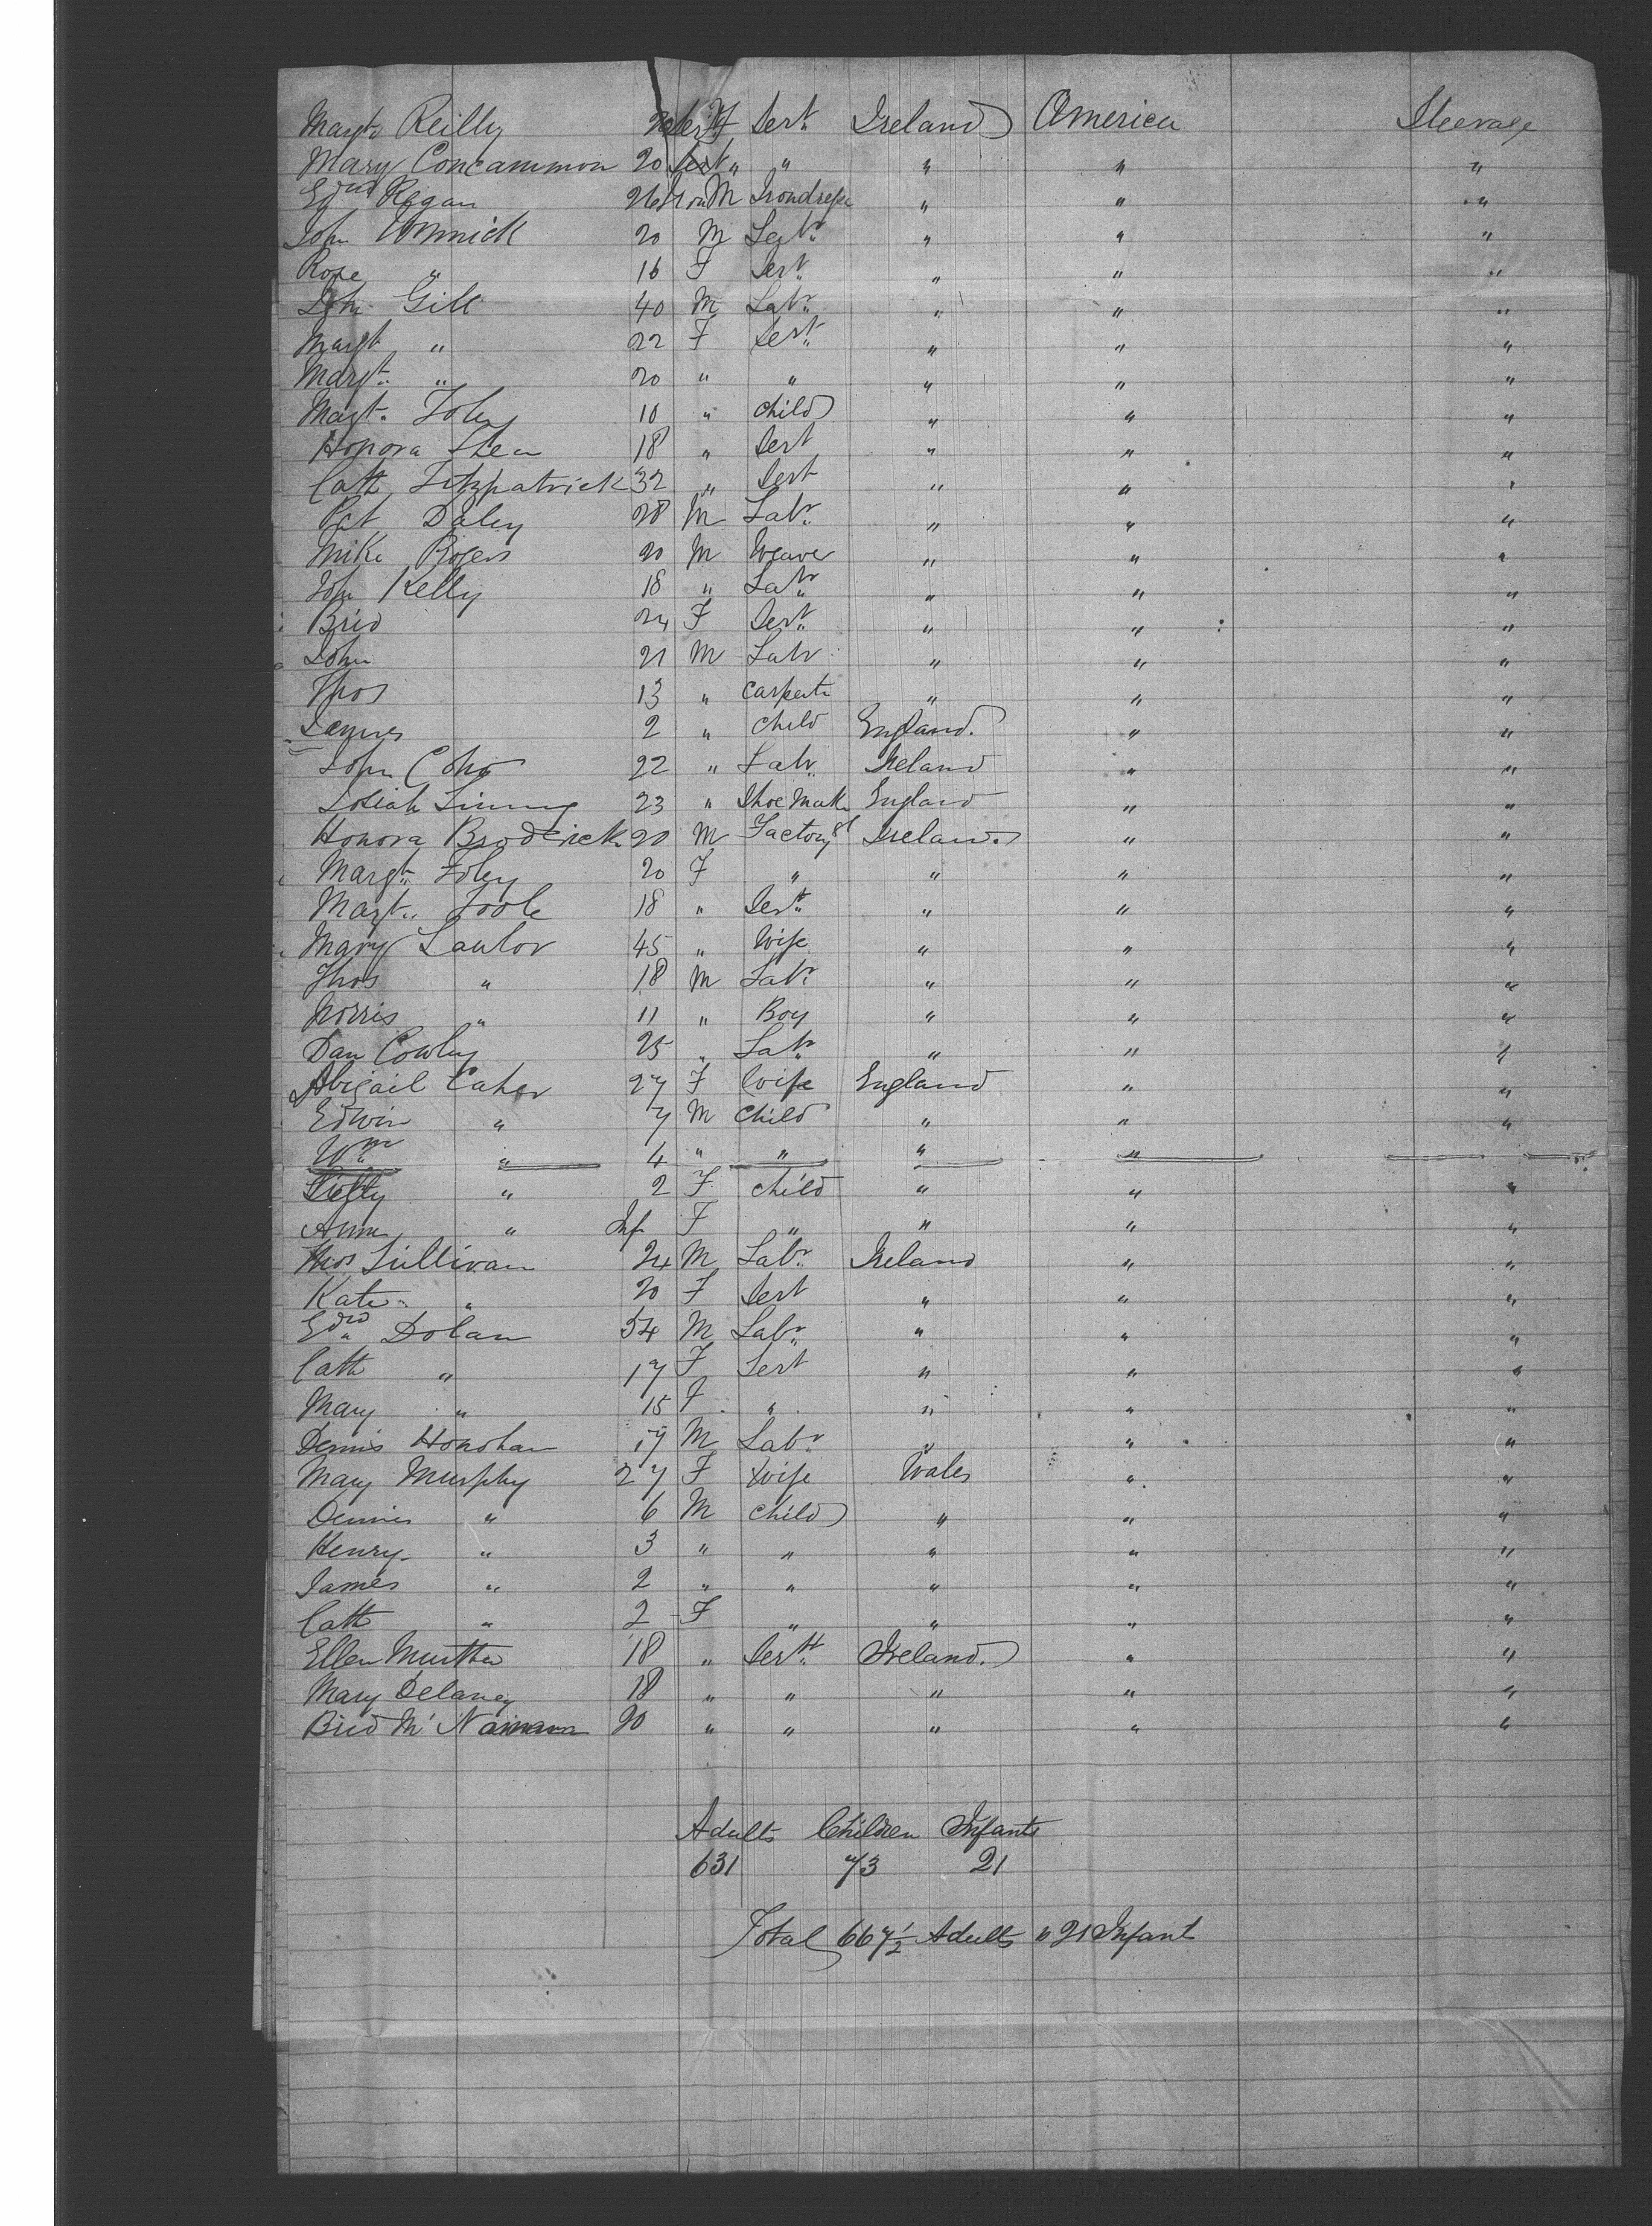 Margt. Reilly 20 F Sert. Ireland America Steerage
Mary Concammon 20 " " " " "
Edwd Regan 26 M Irondresser " " "
John Cormick 20 M Labr. " " "
Rose " 16 F Sert. " " "
John Gill 40 M Labr. " " "
Margt " 22 F Sert. " " "
Margt. " 20 " " " " "
Margt. Foley 10 " Child " " "
Honora Shea 18 " Sert " " "
Cath Fitzpatrick 32 " Sert " " "
Pat Daley 28 M Labr. " " "
Mike Rogers 20 M Weaver " " "
John Kelly 18 " Labr. " " "
Brid 24 F Sert. " " "
John 21 M Labr " " "
Thos 13 " Carpentr " " "
James 2 " Child England. " "
John 22 " Labr. Ireland " "
Josiah 23 " Shoe Maker England " "
Honora Broderick 20 M Factory Ireland. " "
Margt. Foley 20 F " " " "
Margt. Toole 18 " Sert. " " "
Mary Lawlor 45 " Wife " " "
Thos " 18 M Labr. " " "
Morris " 11 " Boy " " "
Dan Cowley 25 " Labr. " " "
Abigail Caher 27 F Wife England " "
Edwin " 7 M Child " " "
Wm " 4 " " " "
" 2 F Child " " "
Anne " Inf F " " " "
Thos Sullivan 24 M Labr. Ireland " "
Kate " 20 F Sert " " "
Edwd. Dolan 54 M Labr. " " "
Cath " 17 F Sert " " "
Mary " 15 F " " " "
Dennis Honohan 19 M Labr. " " "
Mary Murphy 27 F Wife Wales " "
Dennis " 6 M Child " " "
Henry " 3 " " " " "
James " 2 " " " " "
Cath " 2 F " " " "
Ellen Murtha 18 " Sert. Ireland. " "
Mary Delaney 18 " " " " "
Brid McNamara 20 " " " " "
Adults Children Infants
631 73 21
Total 667 1/2 Adults " 21 Infant